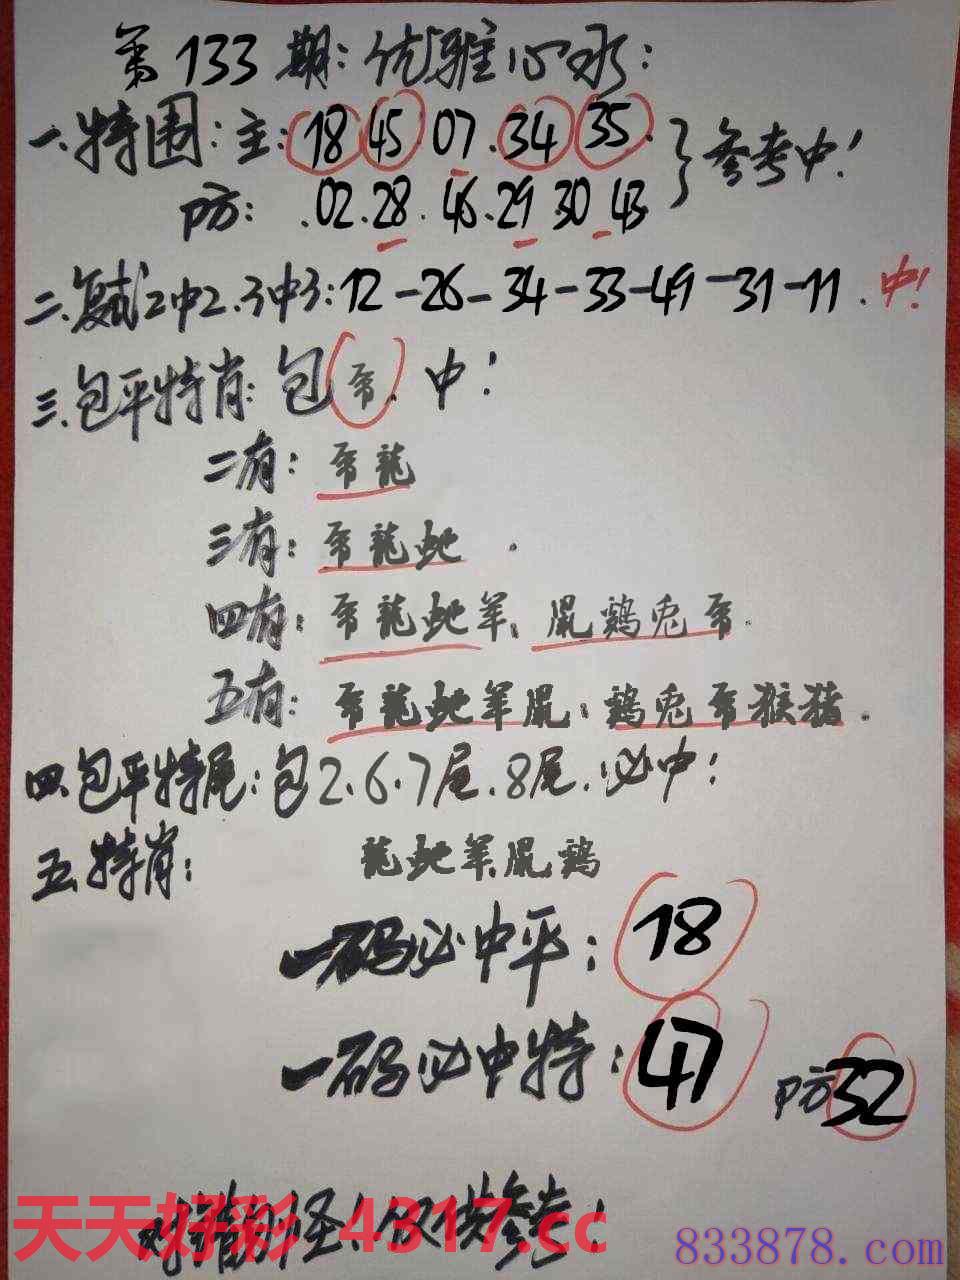 第133期:优雅心水:
一.特围:主:18 45.07.34 35.
防:.02.28.46.29 30 43
参考中!
二.复式2中2.3中3:12-26-34-33-49-31-11.中!
三.包平特肖:包 . 中!
二有: 龍
三有: 龍蛇.
四有: 龍蛇羊. 鼠鷄兔
五有: 龍蛇羊鼠. 鷄兔 猴猪.
四.包平特尾:包2.6.7尾.8尾.必中!
五.特肖: 龍蛇羊鼠鷄
一码必中平: 18
一码必中特: 47 防32
仅供参考!
天天好彩 4317.cc
833878.com